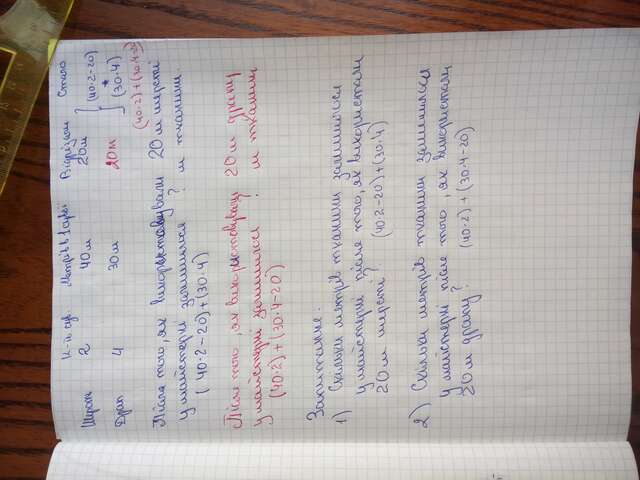 К-ть сув. Метрів в 1 сувої Відрізали Стало
Шерсть 2 40 м 20 м (40·2-20)
Драп 4 30 м 20 м (30·4)
(40·2)+(30·4-20)
Після того, як використовували 20 м шерсті
у майстерні залишилося ? м тканини.
(40·2-20)+(30·4)
Після того, як використовували 20 м драпу
у майстерні залишилося ? м тканини
(40·2)+(30·4-20)
Запитання:
1) Скільки метрів тканини залишилося
у майстерні після того, як використали
20 м шерсті? (40·2-20)+(30·4)
2) Скільки метрів тканини залишилося
у майстерні після того, як використали
20 м драпу? (40·2)+(30·4-20)